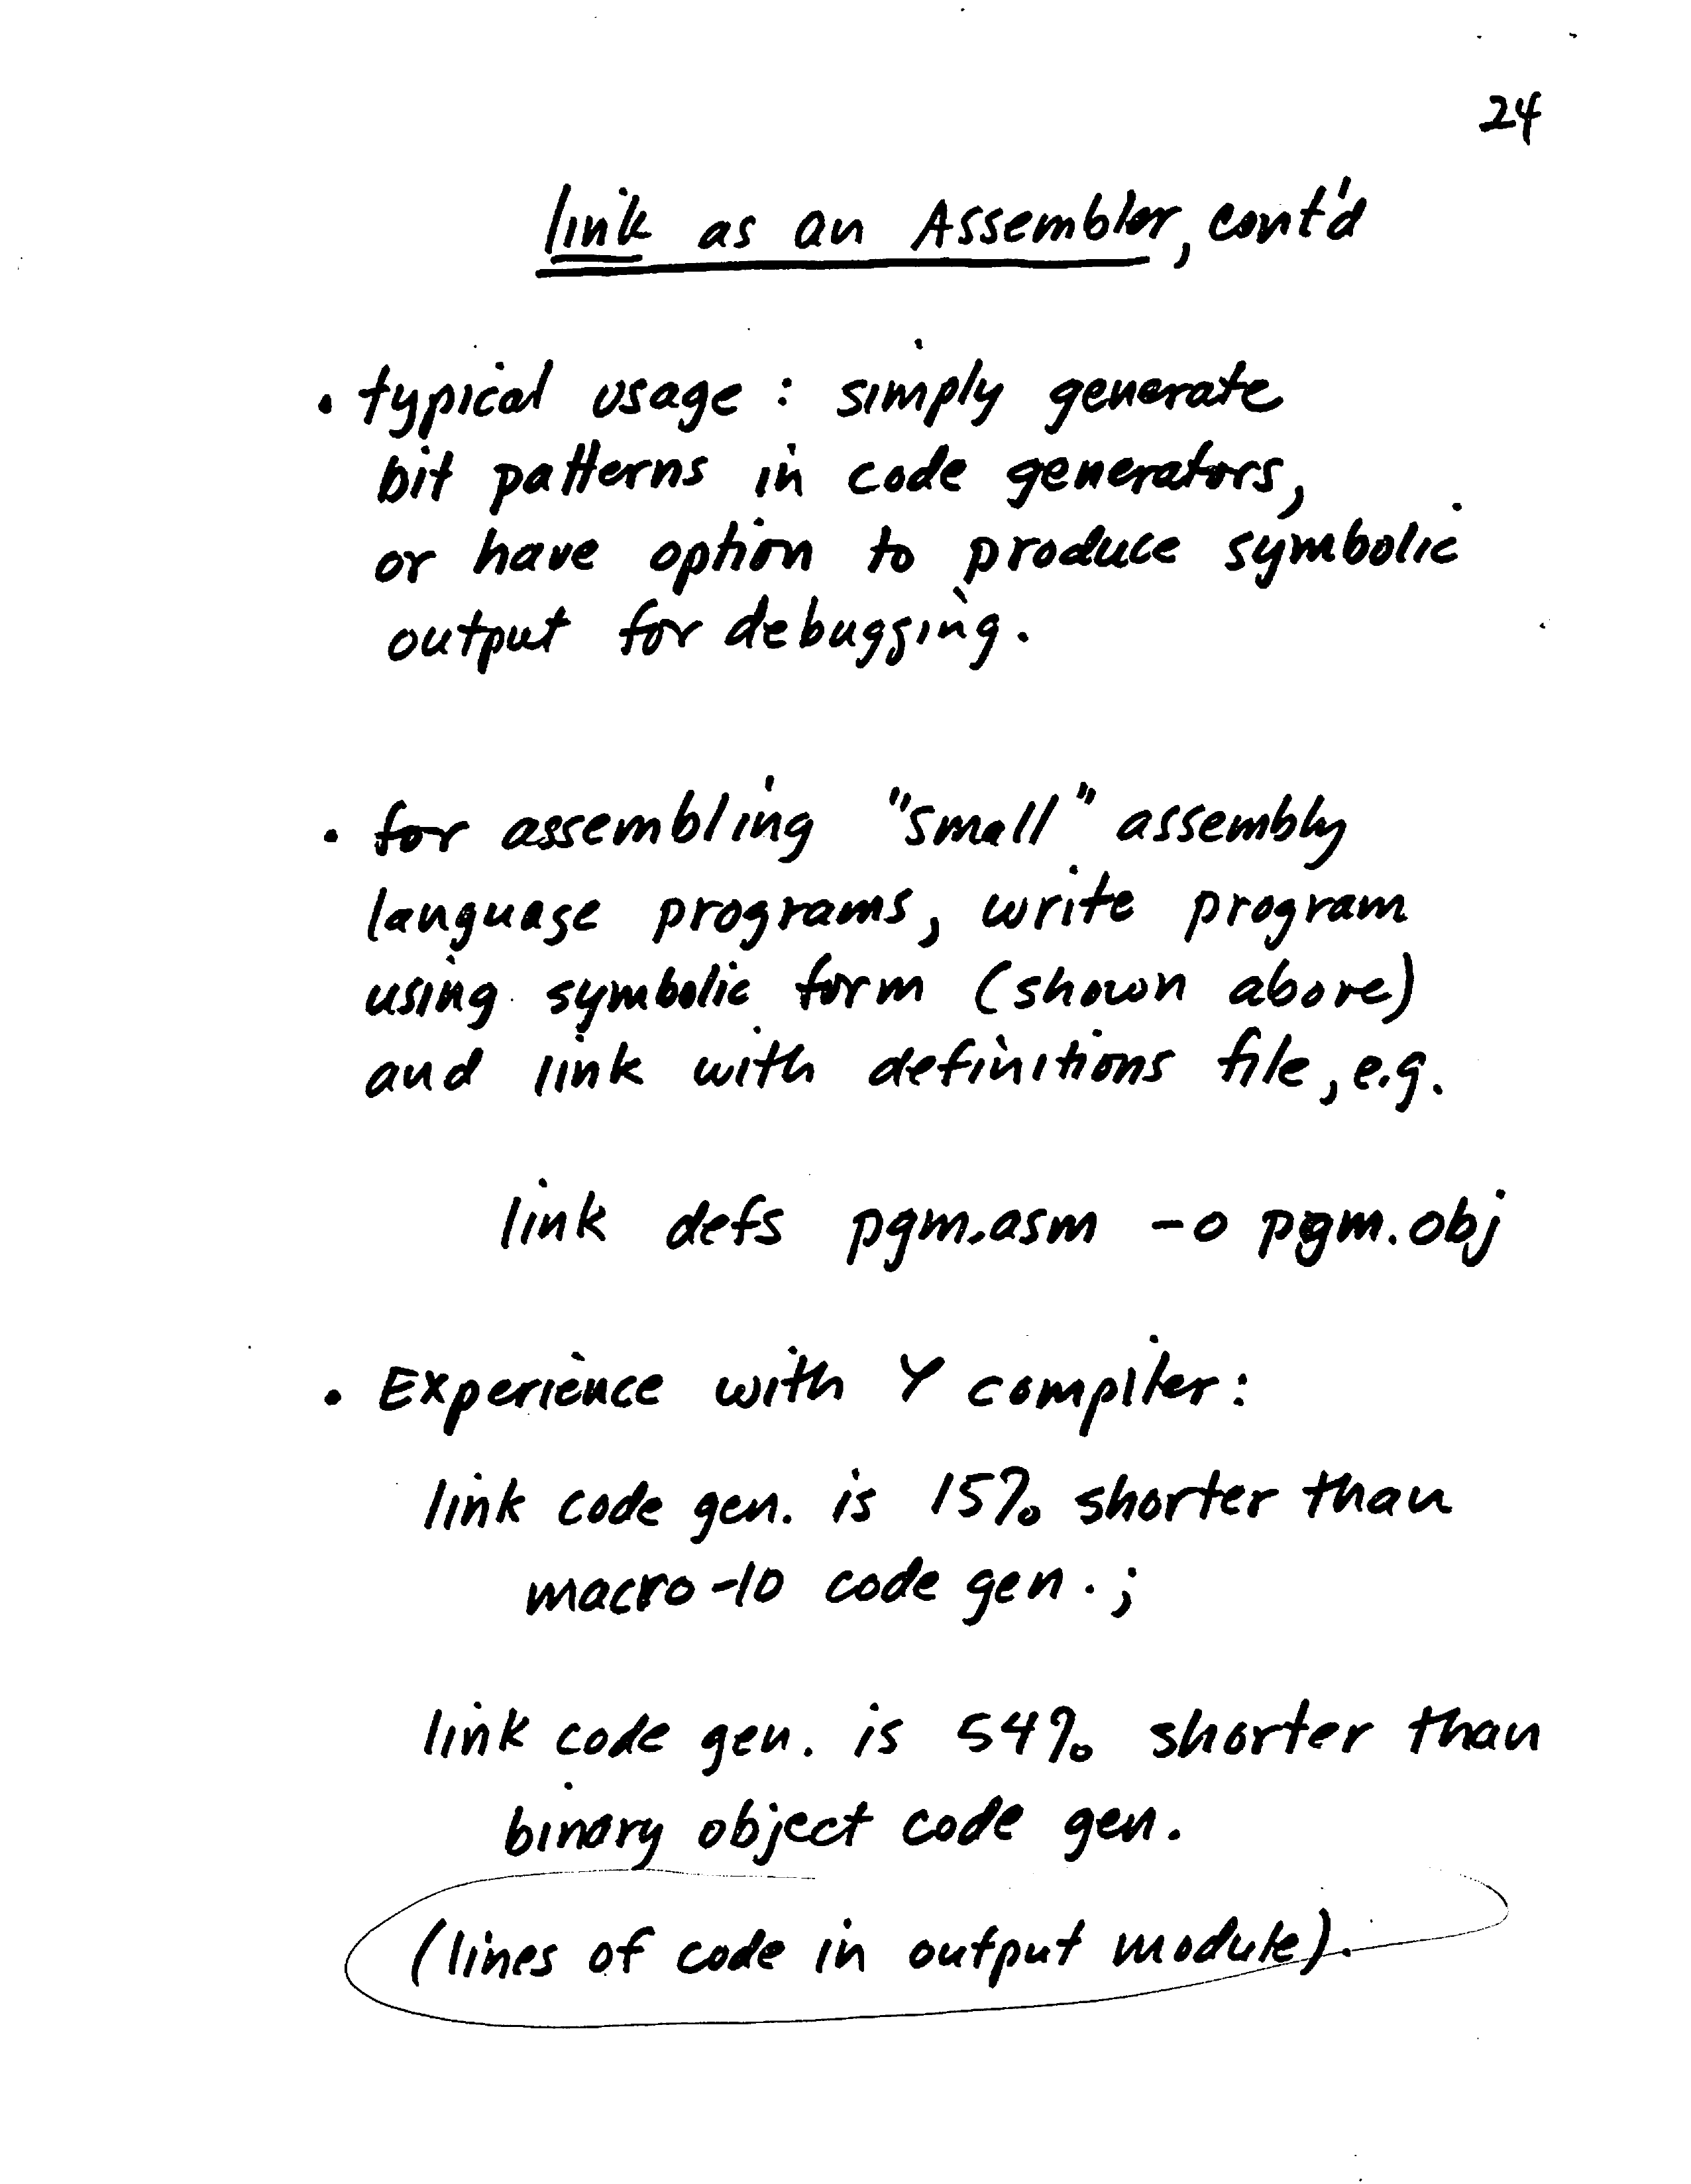 24
link as an Assembler, cont'd
• typical usage: simply generate
bit patterns in code generators,
or have option to produce symbolic
output for debugging.
• for assembling "small" assembly
language programs, write program
using symbolic form (shown above)
and link with definitions file, e.g.
link defs pgm.asm -o pgm.obj
• Experience with Y compiler:
link code gen. is 15% shorter than
macro-10 code gen.;
link code gen. is 54% shorter than
binary object code gen.
(lines of code in output module).